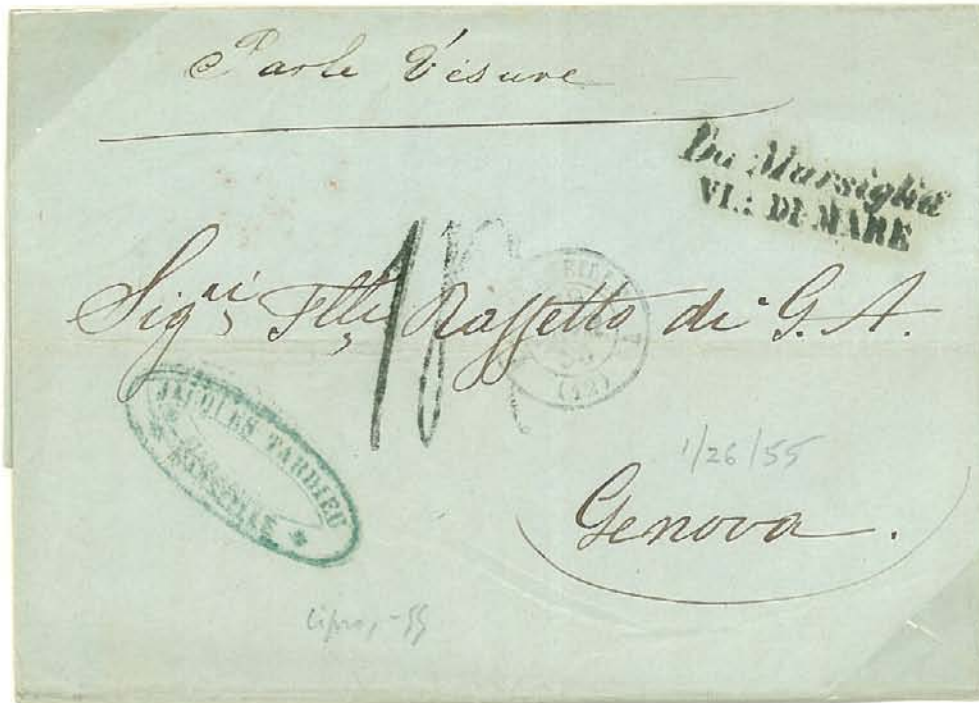 Par le Vésuve
Da Marsiglia
VI.: DI MARE
Sig.ri F.lli Raffetto di G. A.
(12)
JACQUES TARDIEU
MARSEILLE
1/26/55
Genova.